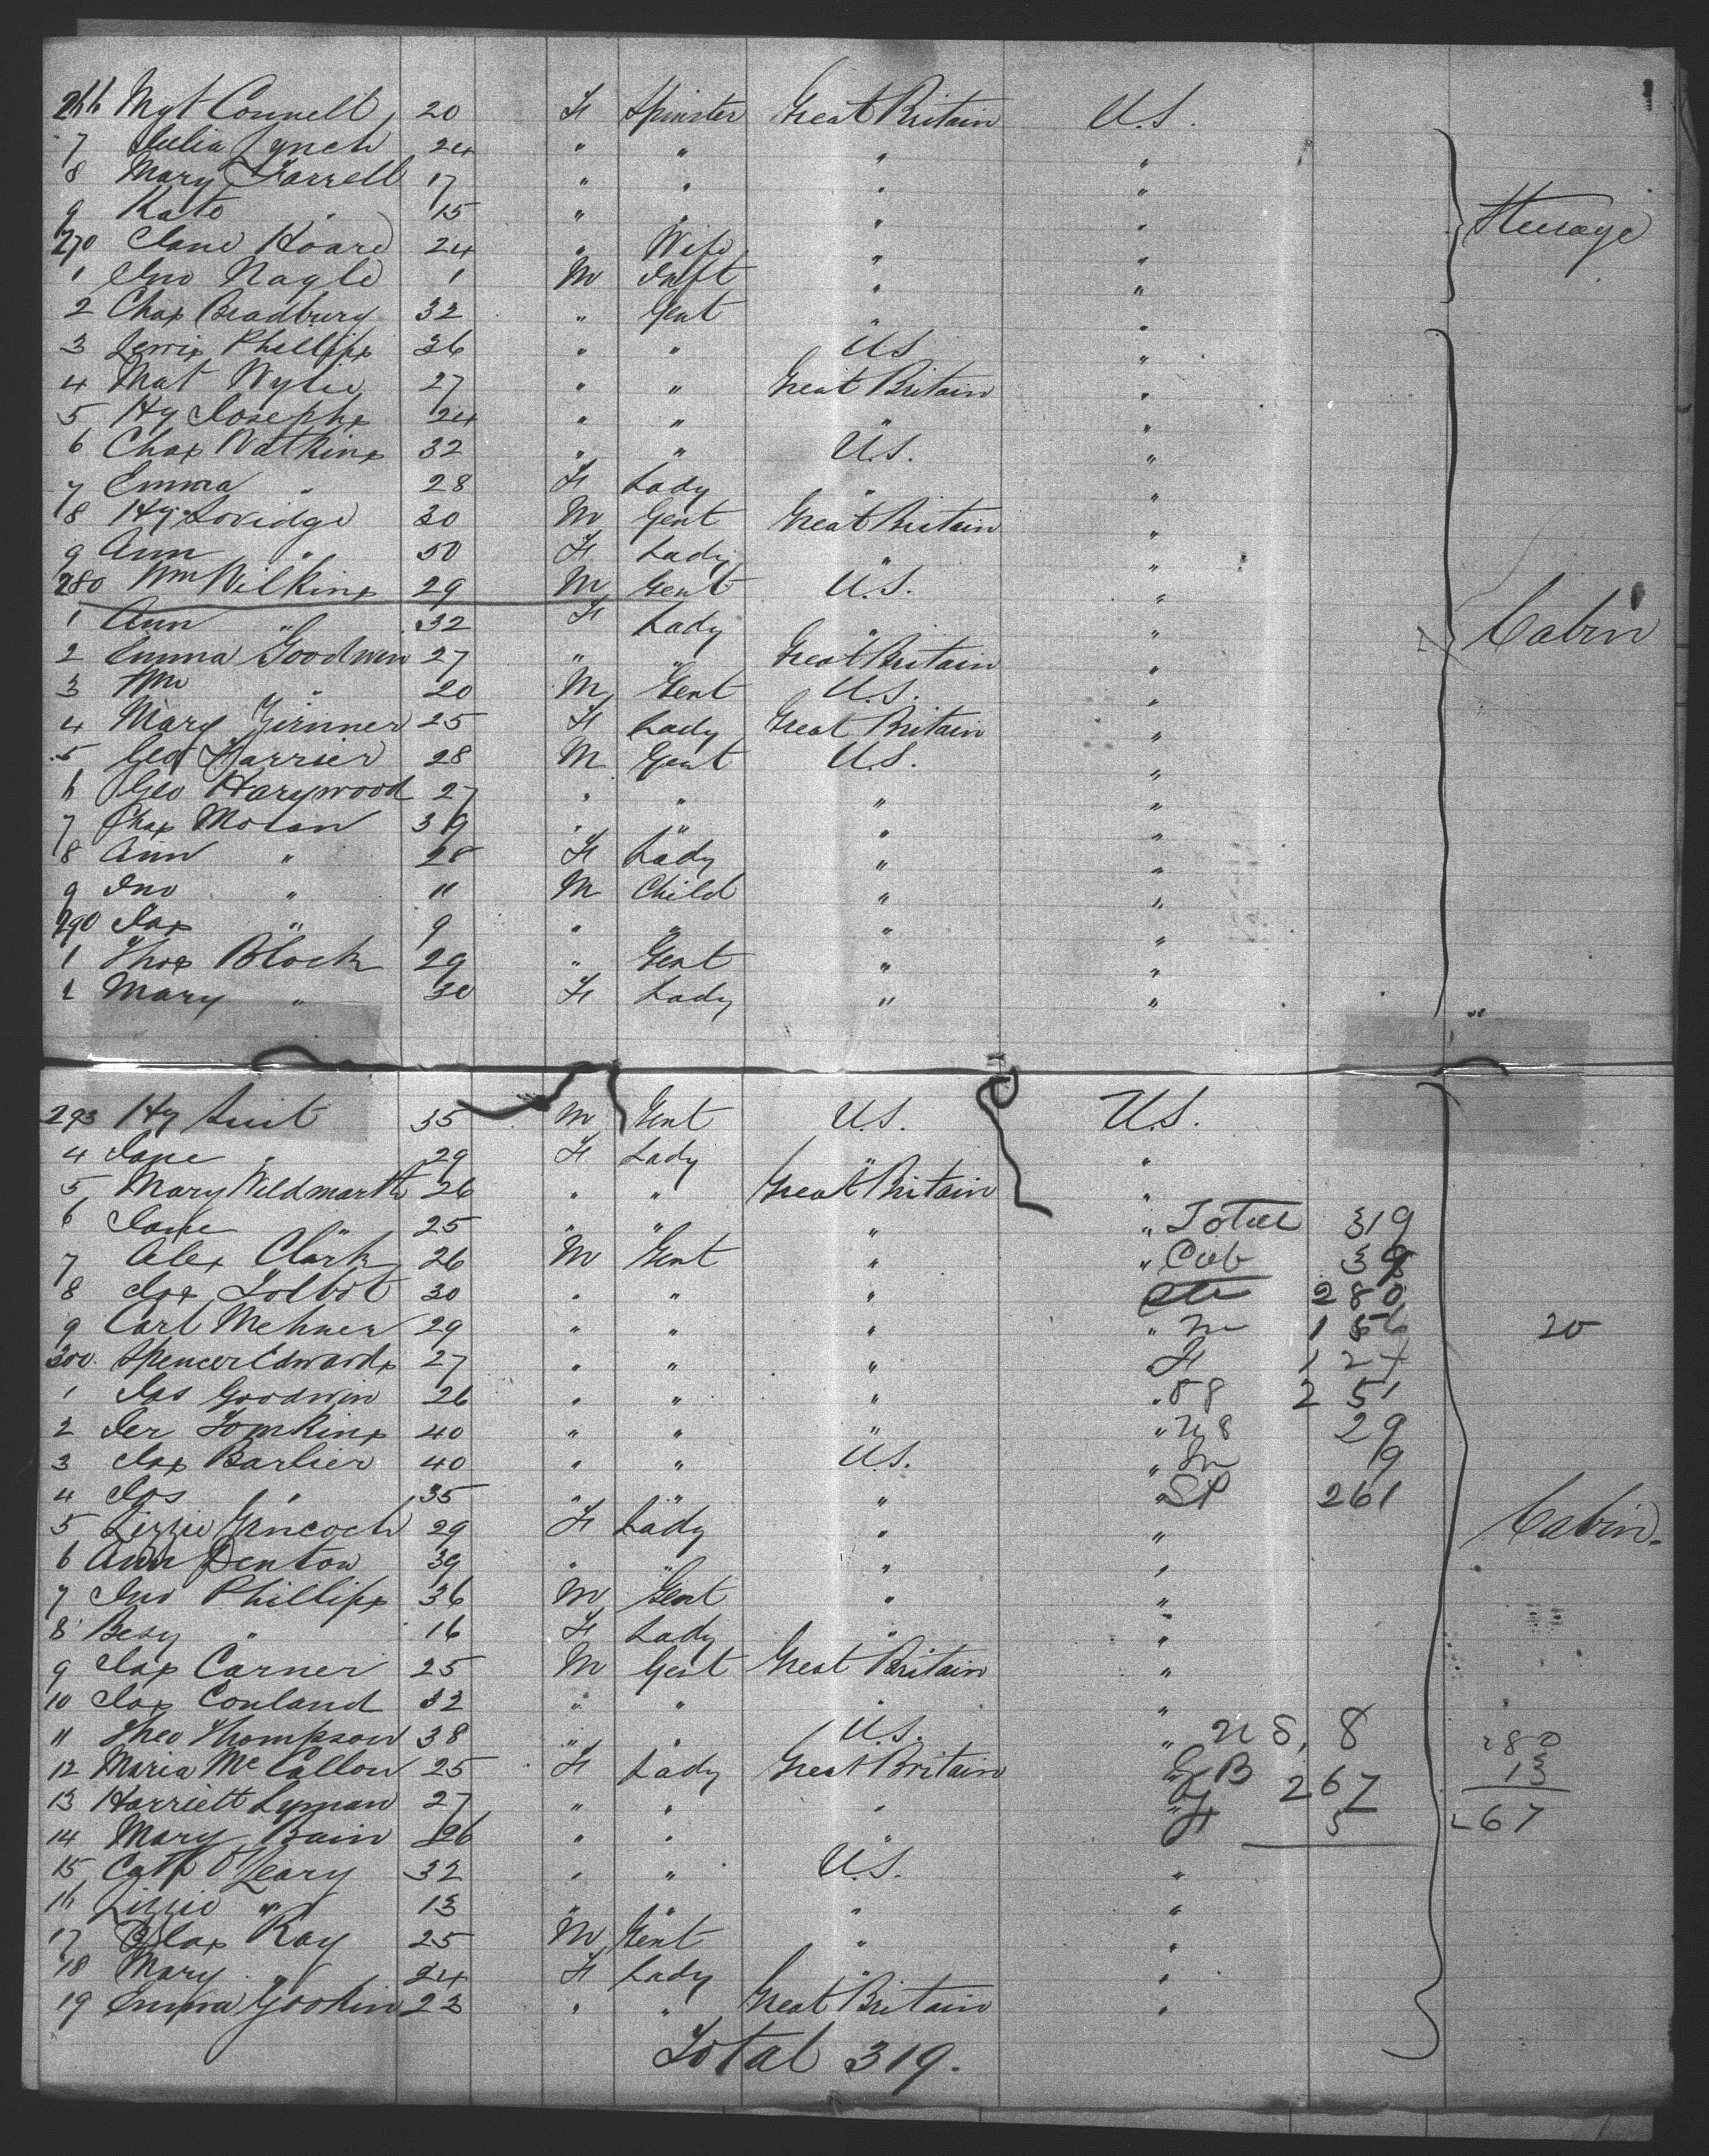 266 Mgt Connell 20 F Spinster Great Britain U.S.
7 Julia Lynch 24 " " " "
8 Mary Farrell 17 " " " "
9 Kate " 15 " " " "
270 Jane Hoare 24 " Wife " "
1 Jno Nagle 1 M Inft " "
2 Chas Bradbury 32 " Gent " "
3 Lewis Phillips 36 " " U.S. "
4 Mat Wylie 27 " " Great Britain "
5 Hy Josephs 24 " " " "
6 Chas Watkins 32 " " U.S. "
7 Emma " 28 F Lady " "
8 Hy Loridge 30 M Gent Great Britain "
9 Ann " 50 F Lady " "
280 Wm Wilkins 29 M Gent U.S. "
1 Ann " 32 F Lady " "
2 Emma Goodwin 27 " " Great Britain "
3 Wm " 20 M Gent U.S. "
4 Mary 25 F Lady Great Britain "
5 Geo 28 M Gent U.S. "
6 Geo Harywood 27 " " " "
7 Chas Moran 39 " " " "
8 Ann " 28 F Lady " "
9 Jno " 11 M Child " "
290 Jas " 9 " " " "
1 Thos Block 29 " Gent " "
2 Mary " 30 F Lady " "
Steerage
Cabin
293 Hy 35 M Gent U.S. U.S.
4 Jane " 29 F Lady " "
5 Mary Wildmarth 26 " " Great Britain "
6 Jane " 25 " " " " Total 319
7 Alex Clark 26 M Gent " " Cab 39
8 Jos Tolbot 30 " " " Ste 280
9 Carl Mehner 29 " " " " M 20
300 Spencer Edwards 27 " " " F
1 Jas Goodwin 26 " " " " 251
2 Jer Tomkins 40 " " " " 29
3 Jas Barlier 40 " " U.S. " 19
4 Jos " 35 " " " 261
5 Lizzie Hancock 29 F Lady " "
6 Ann Denton 39 " " " "
7 Jno Phillips 36 M Gent " "
8 Besy " 16 F Lady " "
9 Jas Carner 25 M Gent Great Britain "
10 Jas Conland 32 " " " "
11 Theo Thompson 38 " " U.S. " U S, 8
12 Maria McCallon 25 F Lady Great Britain " G B 267
13 Harriett Lyman 27 " " " "
14 Mary Bain 26 " " " "
15 Cath O'Leary 32 " " U.S. "
16 Lizzie " 13 " " " "
17 Jas Ray 25 M Gent " "
18 Mary " 24 F Lady " "
19 Emma Gookin 23 " " Great Britain "
Cabin
280
13
267
Total 319.